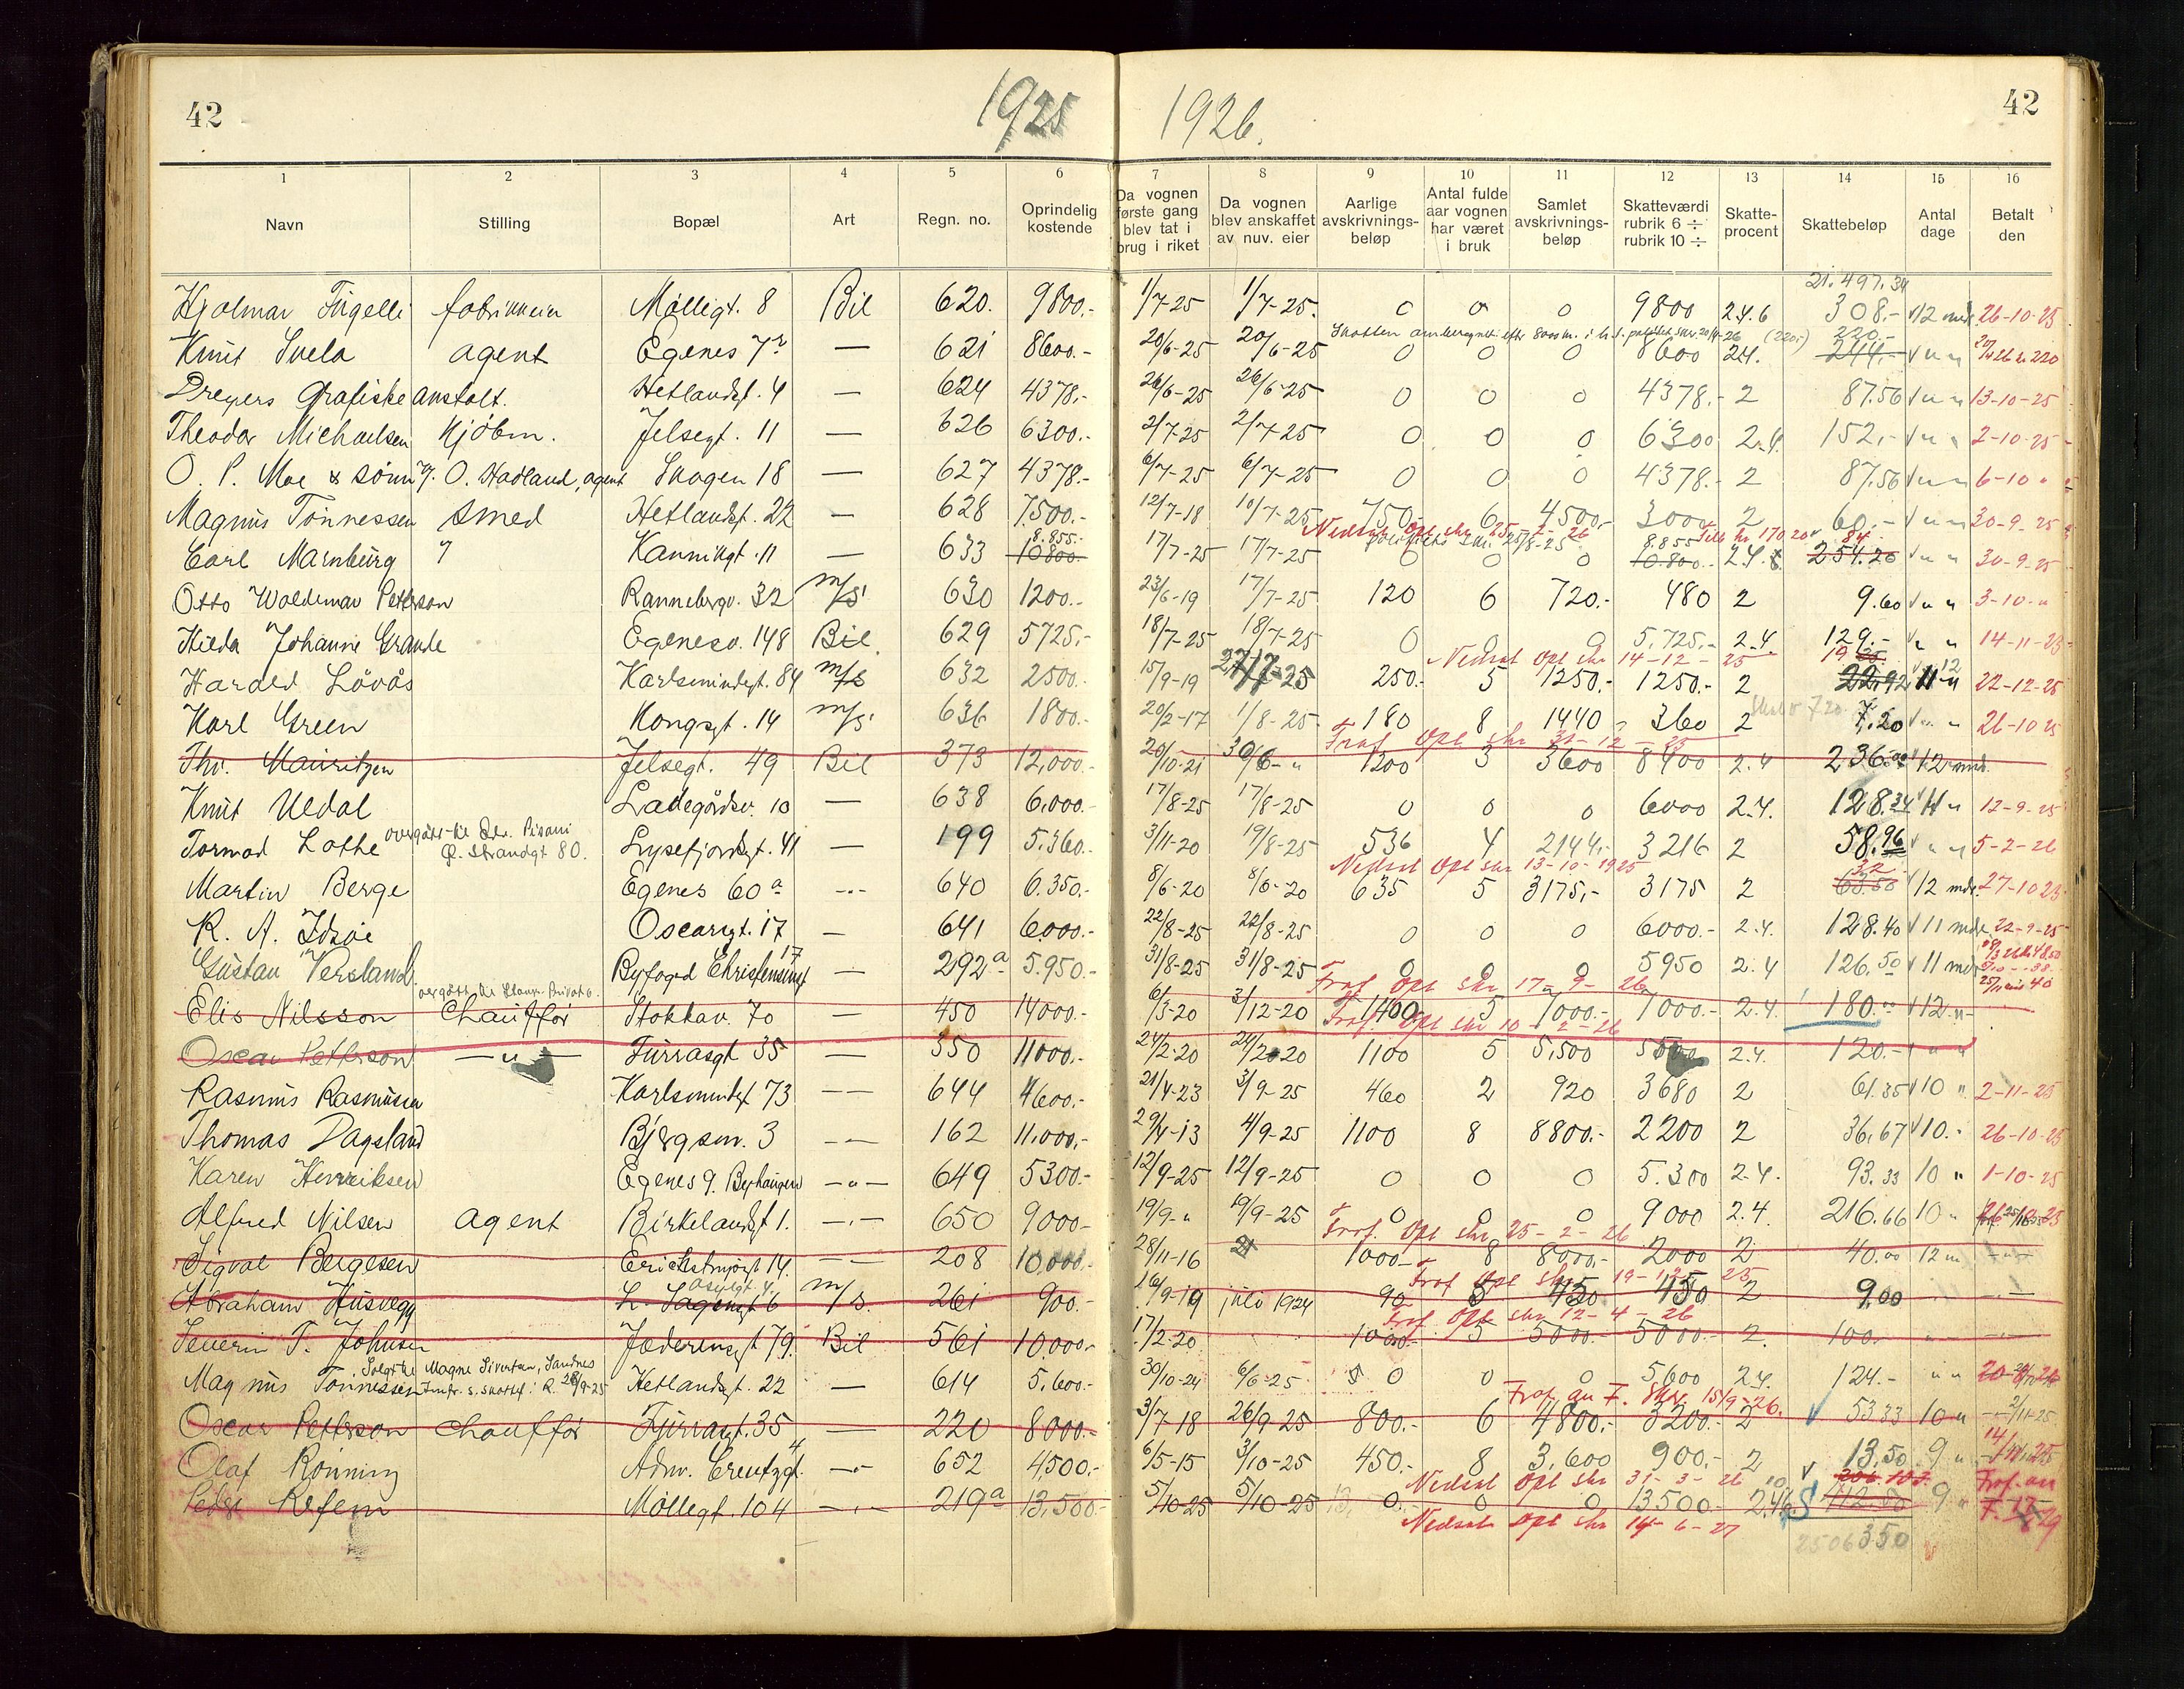 42
1925
1926.
42
1 2 3 4 5 6 7 8 9 10 11 12 13 14 15 16
Navn Stilling Bopæl Art Regn. no. Oprindelig kostende Da vognen første gang blev tat i brug i riket Da vognen blev anskaffet av nuv. eier Aarlige avskrivnings- beløp Antal fulde aar vognen har været i bruk Samlet avskrivnings- beløp Skatteværdi rubrik 6 ÷ rubrik 10 ÷ Skatte- procent Skattebeløp Antal dage Betalt den
21.497.34
Hjalmar Figelli fabrikkeier Møllegt. 8 Bil 620. 9800.- 1/7-25 1/7-25. 0 0 0 9800 2.4.6 308.- 12 md. 26-10-25
220.-
Knut Svela agent Egenes 7 — 621 8600.- 20/6-25 20/6-25 0 0 0 8600 2.4. 244.- " " 220
Dreyers Grafiske anstalt. Hetlandsgt. 4 — 624 4378.- 26/6-25 26/6-25 0 0 0 4378.- 2 87.56 " " 13-10-25
Theodor Michaelsen Kjøbm. Jelsegt. 11 — 626 6300.- 2/7-25 2/7-25 0 0 0 6300 2.4. 152.- " " 2-10-25
O. P. Moe & sønn O. Hadland, agent Skagen 18 — 627 4378.- 6/7-25 6/7-25 0 0 0 4378.- 2 87.56 " " 6-10 "
Magnus Tønnessen Smed Hetlandsgt. 22 — 628 7500.- 12/7-18 10/7-25 750.- 6 4500.- 3000 2 60.- " " 30-9-25
Nedsat Opl skr 25-2-26
8.855.- 8.855 84
Carl Marnburg Kannikgt. 11 — 633 10800 17/7-25 17/7-25 0 0 0 10.800.- 2.4. 254.20 " " 30-9-25
Otto Woldemar Petterson Rannebergv. 32 m/s. 630 1200.- 23/6-19 17/7-25 120 6 720.- 480 2 9.60 " " 3-10-"
Hilda Johanne Grande Egenesv. 148 Bil. 629 5725.- 18/7-25 18/7-25 0 0 0 5.725.- 2.4. 129.- " " 14-11-25
Nedsat Opl skr 14-12-25
Harald Løvås Karlsmindegt. 84 m/s 632 2500.- 15/9-19 27/7-25 250.- 5 1250.- 1250.- 2 22.92 11 " 22-12-25
Karl Green Kongsgt. 14 m/s. 636 1800.- 20/2-17 1/8-25 180 8 1440 360 2 7.20 " " 26-10-25
Fraf Opl skr 31-12-25
Thv. Mauritzen Jelsegt. 49 Bil 373 12,000.- 20/10-21 30/6-" 1200 3 3600 8400 2.4 236.- 12 md.
Knut Uedal Ladegårdsv. 10 — 638 6,000.- 17/8-25 17/8-25 0 0 0 6000 2.4. 128.34 11 " 12-9-25
Tormod Lothe Strandgt 80. Lysefjordsgt. 41 — 199 5.360.- 3/11-20 19/8-25 536 4 2144.- 3216 2 58.96 " " 5-2-26
Nedsat Opl skr 13-10-1925
32
Martin Berge Egenes 60 a — 640 6.350.- 8/6-20 8/6-20 635 5 3175,- 3175 2 63.50 12 mdr. 27-10-25
R. A. Idsøe Oscarsgt. 17 — 641 6000.- 22/8-25 22/8-25 0 0 0 6000.- 2.4. 128.40 11 mdr. 22-9-25
Gustav Versland Byfogd Christensensgt 17 — 292 a 5.950.- 31/8-25 31/8-25 0 0 0 5950 2.4 126.50 11 mdr
Fraf Opl skr 17-9-26
Elis Nilsson Chauffør Stokkav. 70 — 450 14000.- 6/3-20 3/12-20 1400 5 7000.- 7000.- 2.4. 180.- 12 "
Fraf. Opl skr 10-2-26
Oscar Petterson —"— Furrasgt 35 — 350 11000.- 24/2-20 24/2-20 1100 5 5,500 5500 2.4. 120.- " "
Rasmus Rasmussen Karlsmindegt 73 — 644 4600.- 21/4-23 3/9-25 460 2 920 3680 2 61.35 10 " 2-11-25
Thomas Dagsland Bjergsv. 3 — 162 11,000.- 29/4-13 4/9-25 1100 8 8800.- 2200 2 36.67 10.- 26-10-25
Karen Henriksen Egenes 9. Byhaugen —"— 649 5300.- 12/9-25 12/9-25 0 0 0 5.300 2.4. 93.33 10 " 1-10-25
Alfred Nilsen agent Birkelandsgt 1. —"— 650 9000- 19/9-" 19/9-25 0 0 0 9000 2.4. 216.66 10 "
Fraf. Opl skr 25-2-26
Sigval Bergesen 14. — 208 10,000.- 28/11-16 1000- 8 8000.- 2000 2 40.00 12 " —"—
Fraf Opl skr 19-12-25
Abraham Husvegg L. Sagensgt 6 m/s. 261 900.- 16/9-19 juli 1924 90 5 450 450 2 9.00 —
Fraf Opl skr 12-4-26
Severin T. Johnsen Jæderensgt 79. Bil 561 10.000.- 17/2-20 1000.- 5 5000.- 5000.- 2. 100.- " —
Solgt til Magne Sivertsen, Sandnes
Magnus Tønnessen Hetlandsgt. 22 — 614 5.600.- 30/10-24 6/6-25 0 0 0 5600 2.4. 124.- " "
Fraf. an F. Skr. 15/9-26.
Oscar Petterson Chauffør Furrasgt. 35 — 220 8000.- 3/7-18 26/9-25 800.- 6 4800.- 3200.- 2 53.33 10 " 2/11-25
Olaf Rønning Adm. Creutzgt. 4 —"— 652 4500.- 6/5-15 3/10-25 450.- 8 3.600 900.- 2 13.50 9 "
Nedsat Opl skr 31-3-26 Fraf. an
Peder Refem Møllegt. 104 —"— 219 a 13,500.- 5/10-25 5/10-25 0.- 0 0 13500.- 2.4.6 412.50 9 "
Nedsat Opl skr 14-6-27
2506350